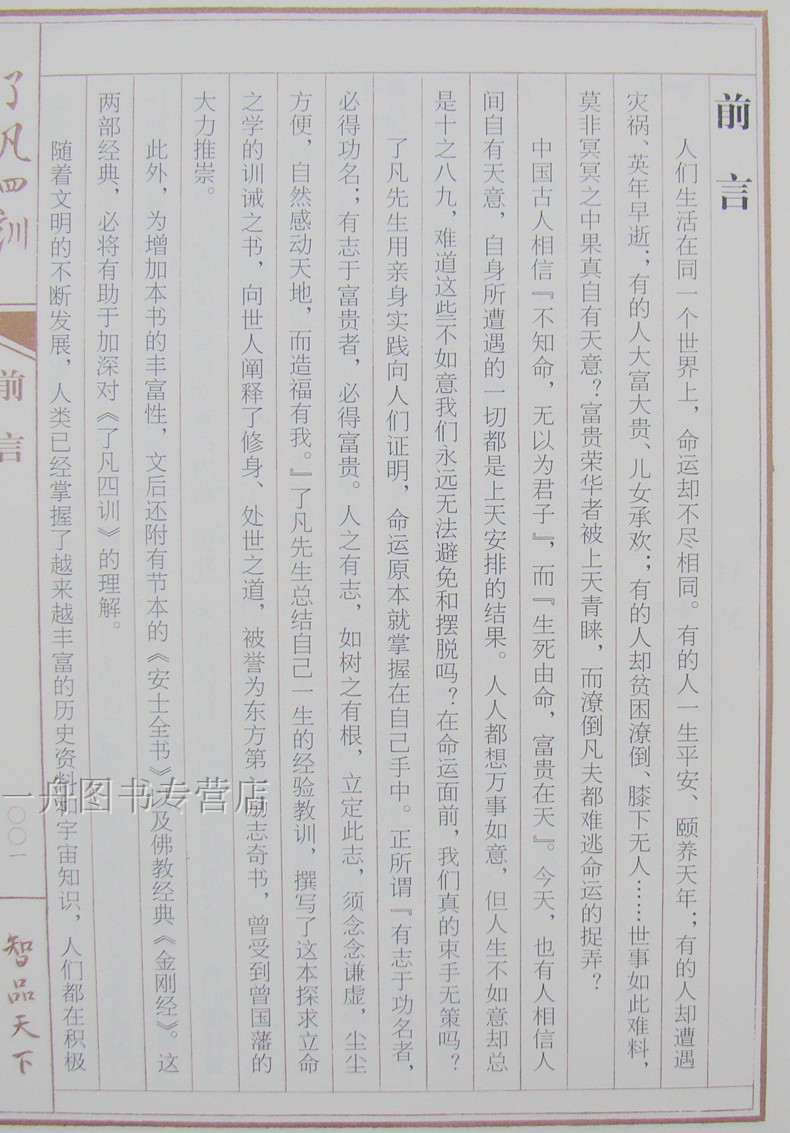 前言
人们生活在同一个世界上，命运却不尽相同。有的人一生平安、颐养天年；有的人却遭遇
灾祸、英年早逝；有的人大富大贵、儿女承欢；有的人却贫困潦倒、膝下无人……世事如此难料，
莫非冥冥之中果真自有天意？富贵荣华者被上天青睐，而潦倒凡夫都难逃命运的捉弄？
中国古人相信『不知命，无以为君子』，而『生死由命，富贵在天』。今天，也有人相信人
间自有天意，自身所遭遇的一切都是上天安排的结果。人人都想万事如意，但人生不如意却总
是十之八九，难道这些不如意我们永远无法避免和摆脱吗？在命运面前，我们真的束手无策吗？
了凡先生用亲身实践向人们证明，命运原本就掌握在自己手中。正所谓『有志于功名者，
必得功名；有志于富贵者，必得富贵。人之有志，如树之有根，立定此志，须念念谦虚，尘尘
方便，自然感动天地，而造福有我。』了凡先生总结自己一生的经验教训，撰写了这本探求立命
之学的训诫之书，向世人阐释了修身、处世之道，被誉为东方第一励志奇书，曾受到曾国藩的
大力推崇。
此外，为增加本书的丰富性，文后还附有节本的《安士全书》以及佛教经典《金刚经》。这
两部经典，必将有助于加深对《了凡四训》的理解。
随着文明的不断发展，人类已经掌握了越来越丰富的历史资料和宇宙知识，人们都在积极
了凡四训
前言
〇〇一
智品天下
一舟图书专营店